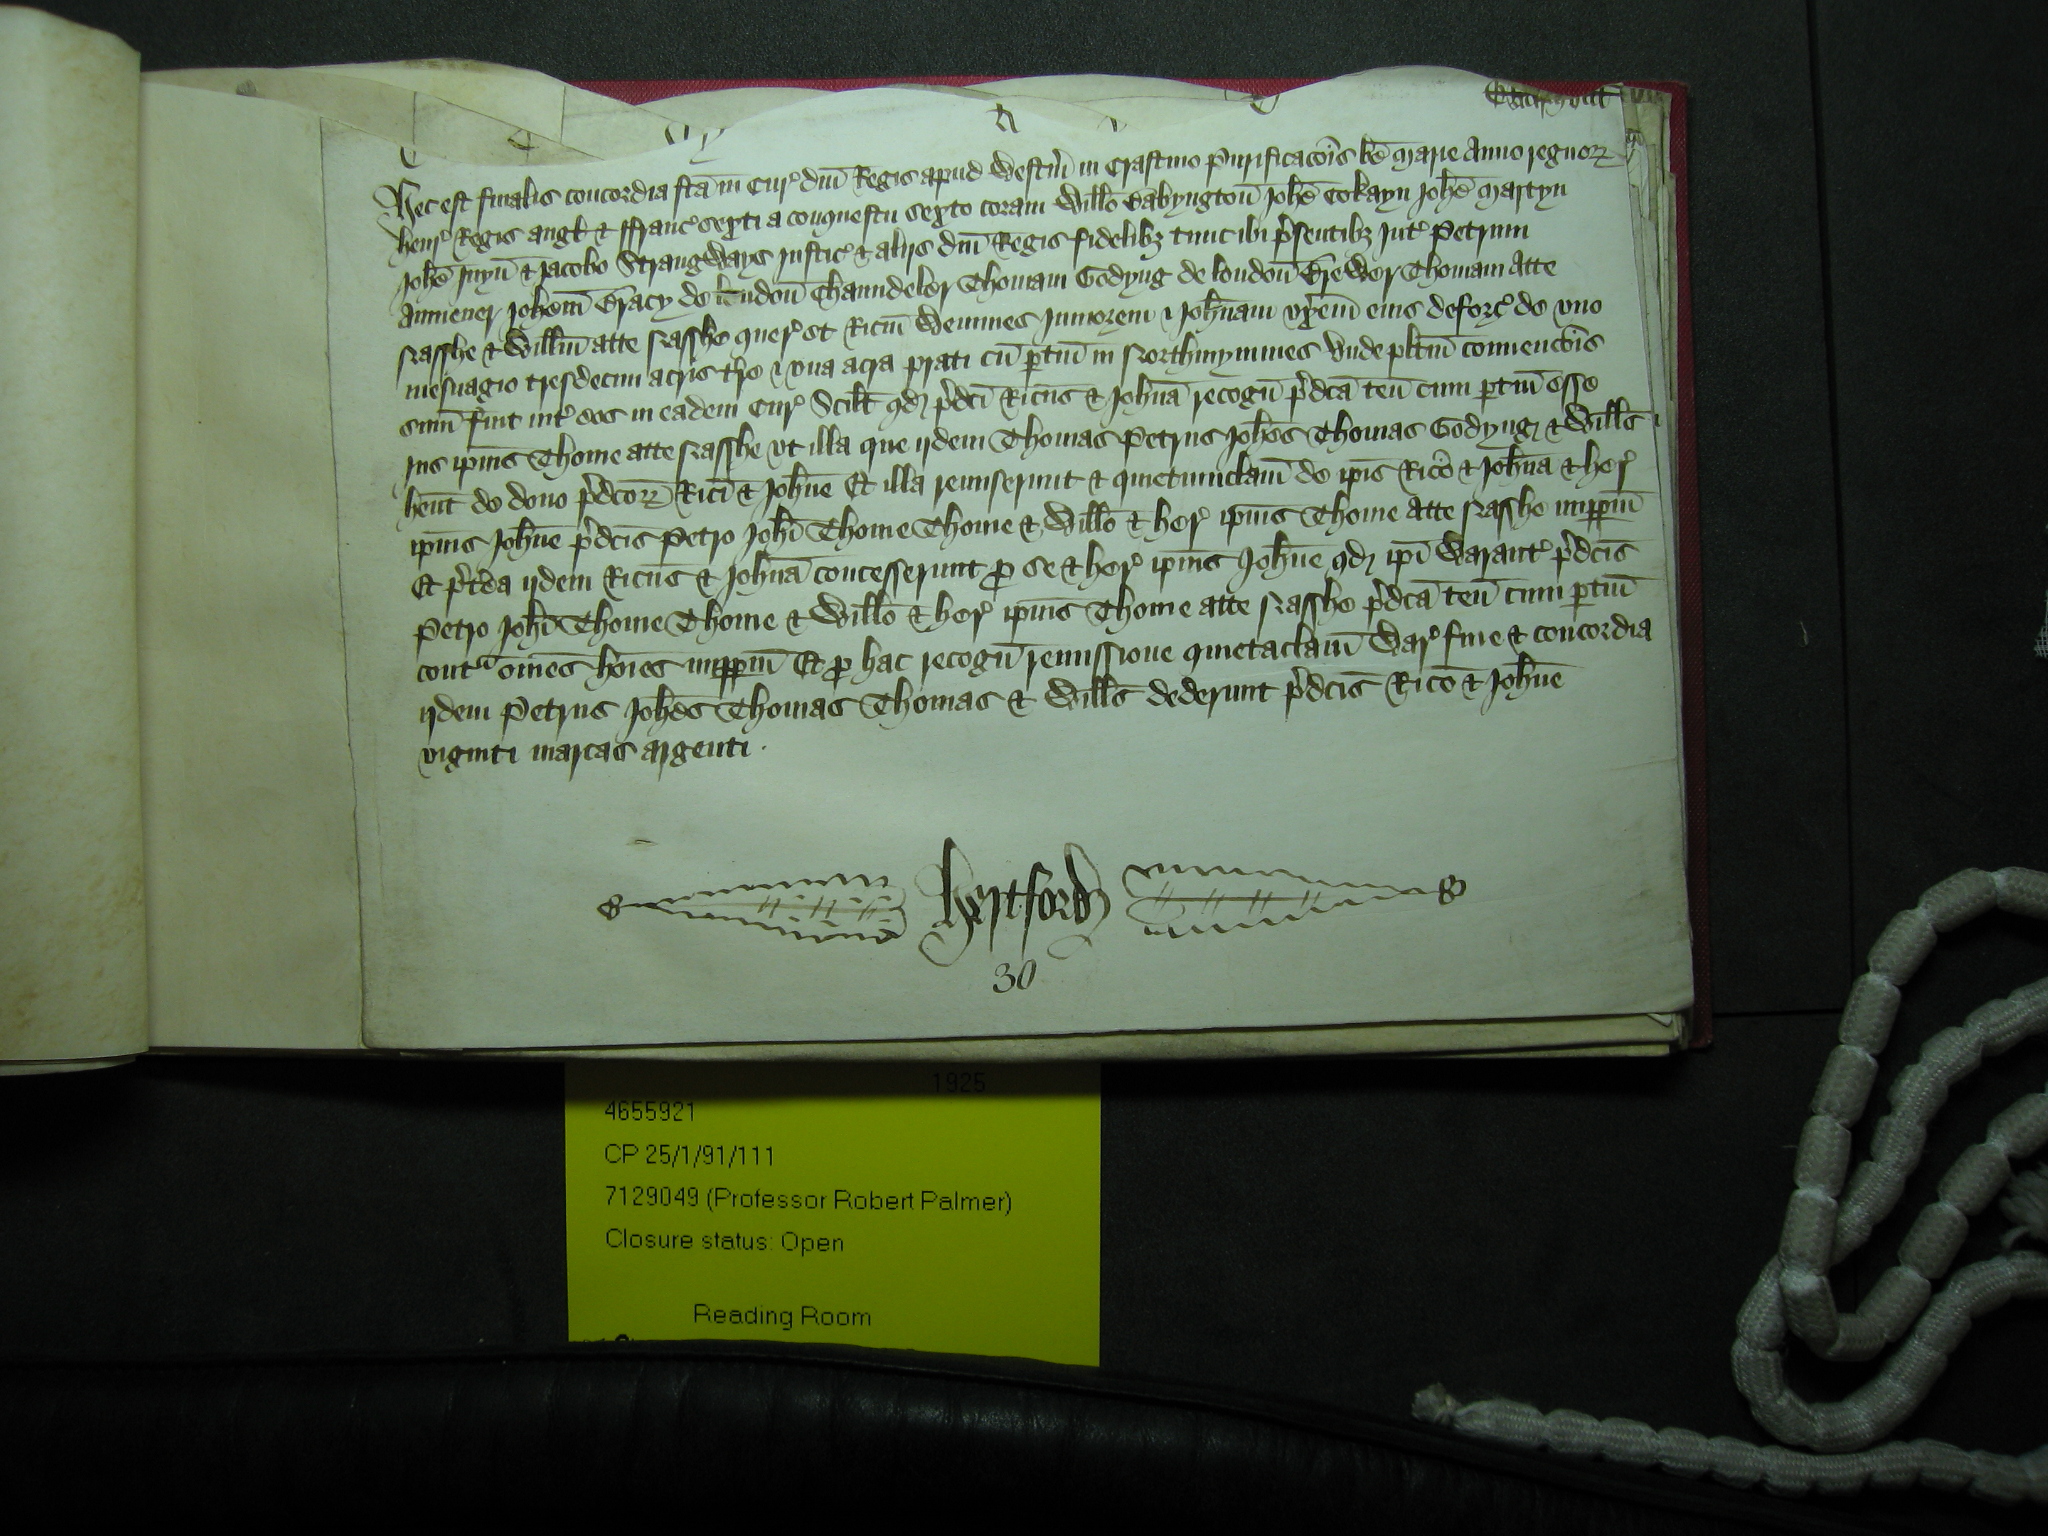 Hec est finalis concordia fc̄a in Cur' dn̄i Regis apud Westm̄ in Crastino Purificacōis bē Marie Anno regnoꝝ
Henr' Regis Angl' & Ffranc' sexti a conquestu sexto coram Willō Babyngton̄ Joh̄e Cokayn Joh̄e Martyn
Joh̄e Juyn̄ & Jacobo Strangways Justic' & alijs dn̄i Regis fidelibȝ tunc ibi p̄sentibȝ Int' Petrum
Joh̄em Bracy de london̄ Chaundeler Thomam Godyng de london̄ Brewer Thomam Atte
Nasshe & Willm̄ atte Nasshe quer' et Ricm̄ Wemmes Juniorem & Joh̄nam vx̄em eius deforc' de vno
mesuagio tresdecim acris t̄re & vna acra prati cū ptin̄ in Northmymmes Vnde pl̄itm̄ conuencōis
sum̄ fuit int' eos in eadem Cur' Scil̄t qd' p̄dc̄i Ric̄us & Joh̄na recogn̄ p̄dc̄a ten̄ cum ptin̄ esse
Ius ip̄ius Thome atte Nasshe vt illa que ijdem Thomas Petrus Joh̄es Thomas Godyng & Will̄s
hēnt de dono p̄dc̄oꝝ Ric̄i & Joh̄ne Et illa remiserunt & quietumclam̄ de ip̄is Ric̄o & Joh̄na & her'
ip̄ius Joh̄ne p̄dc̄is Petro Joh̄i Thome Thome & Willō & her' ip̄ius Thome atte Nasshe imppm̄
Et p̄t̄ea ijdem Ric̄us & Joh̄na concesserunt p se & her' ip̄ius Joh̄ne qd' ip̄i Warant' p̄dc̄is
Petro Joh̄i Thome Thome & Willō & her' ip̄ius Thome atte Nasshe p̄dc̄a ten̄ cum ptin̄
cont̄ om̄es hōies imppm̄ Et p hac recogn̄ remissione quietaclam̄ War' fine & concordia
ijdem Petrus Joh̄es Thomas Thomas & Will̄s dederunt p̄dc̄is Ric̄o & Joh̄ne
viginti marcas argenti .
Hertford'
30
1925
4655921
CP 25/1/91/111
7129049 (Professor Robert Palmer)
Closure status: Open
Reading Room